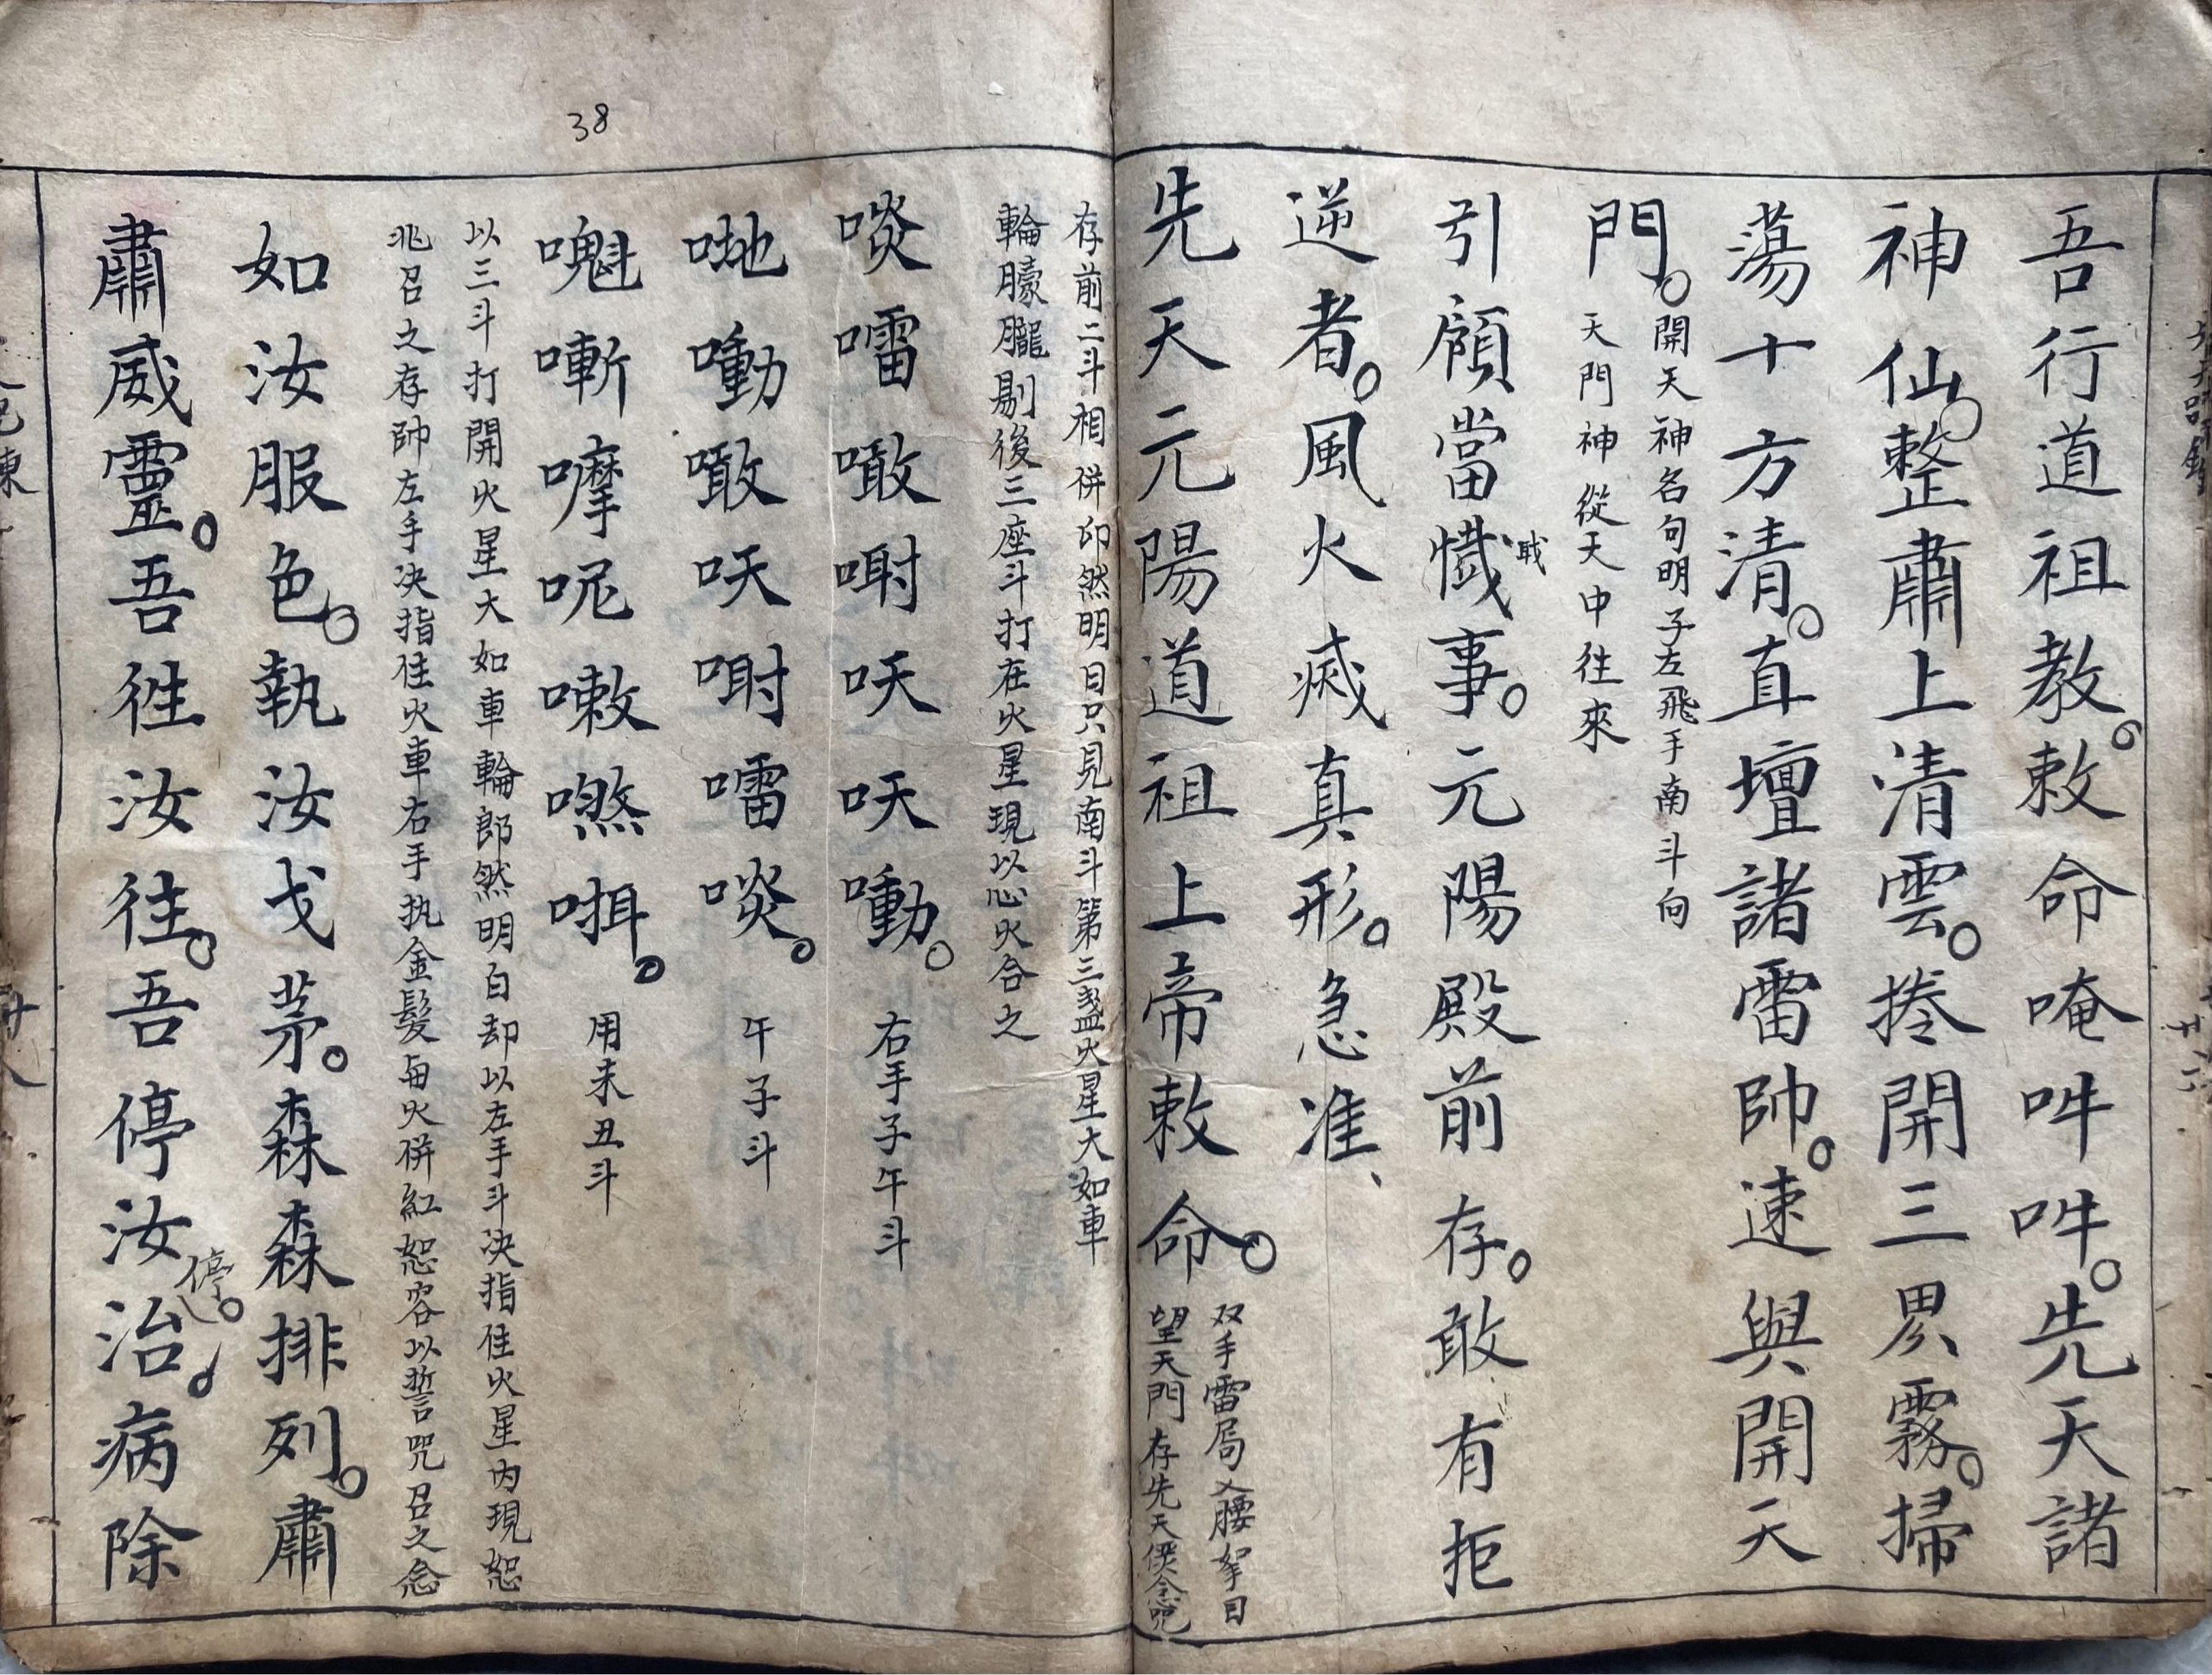 38
吾行道祖教。敕命唵吽吽。先天諸
神仙。整肅上清雲。捲開三界霧。掃
蕩十方清。直壇諸雷帥。速與開天
門。
開天神名句明子左飛手南斗向
天門神從天中往來
引領當懺事。元陽殿前存。敢有拒
戢
逆者。風火滅真形。急准、
先天元陽道祖上帝敕命。
双手雷局入腰拏目
望天門存先天僕令念咒
存前二斗相併卬然明目只見南斗第三盞火星大如車
輪朦朧剔後三座斗打在火星現以心火合之
啖㗊噉㖡𠯋𠯋嘞。
右手子午斗
哋嘞噉𠯋㖡㗊啖。
午子斗
嘰嘶嚤呢嗽㗩咡。
用未丑斗
以三斗打開火星大如車輪郎然明白却以左手斗决指住火星内現恕
兆召之存帥左手决指住火車右手执金髮每火併紅恕容以誓咒召之念
如汝服色。執汝戈茅。森森排列。肅
肅威靈。吾徃汝往。吾停汝治。病除
停。